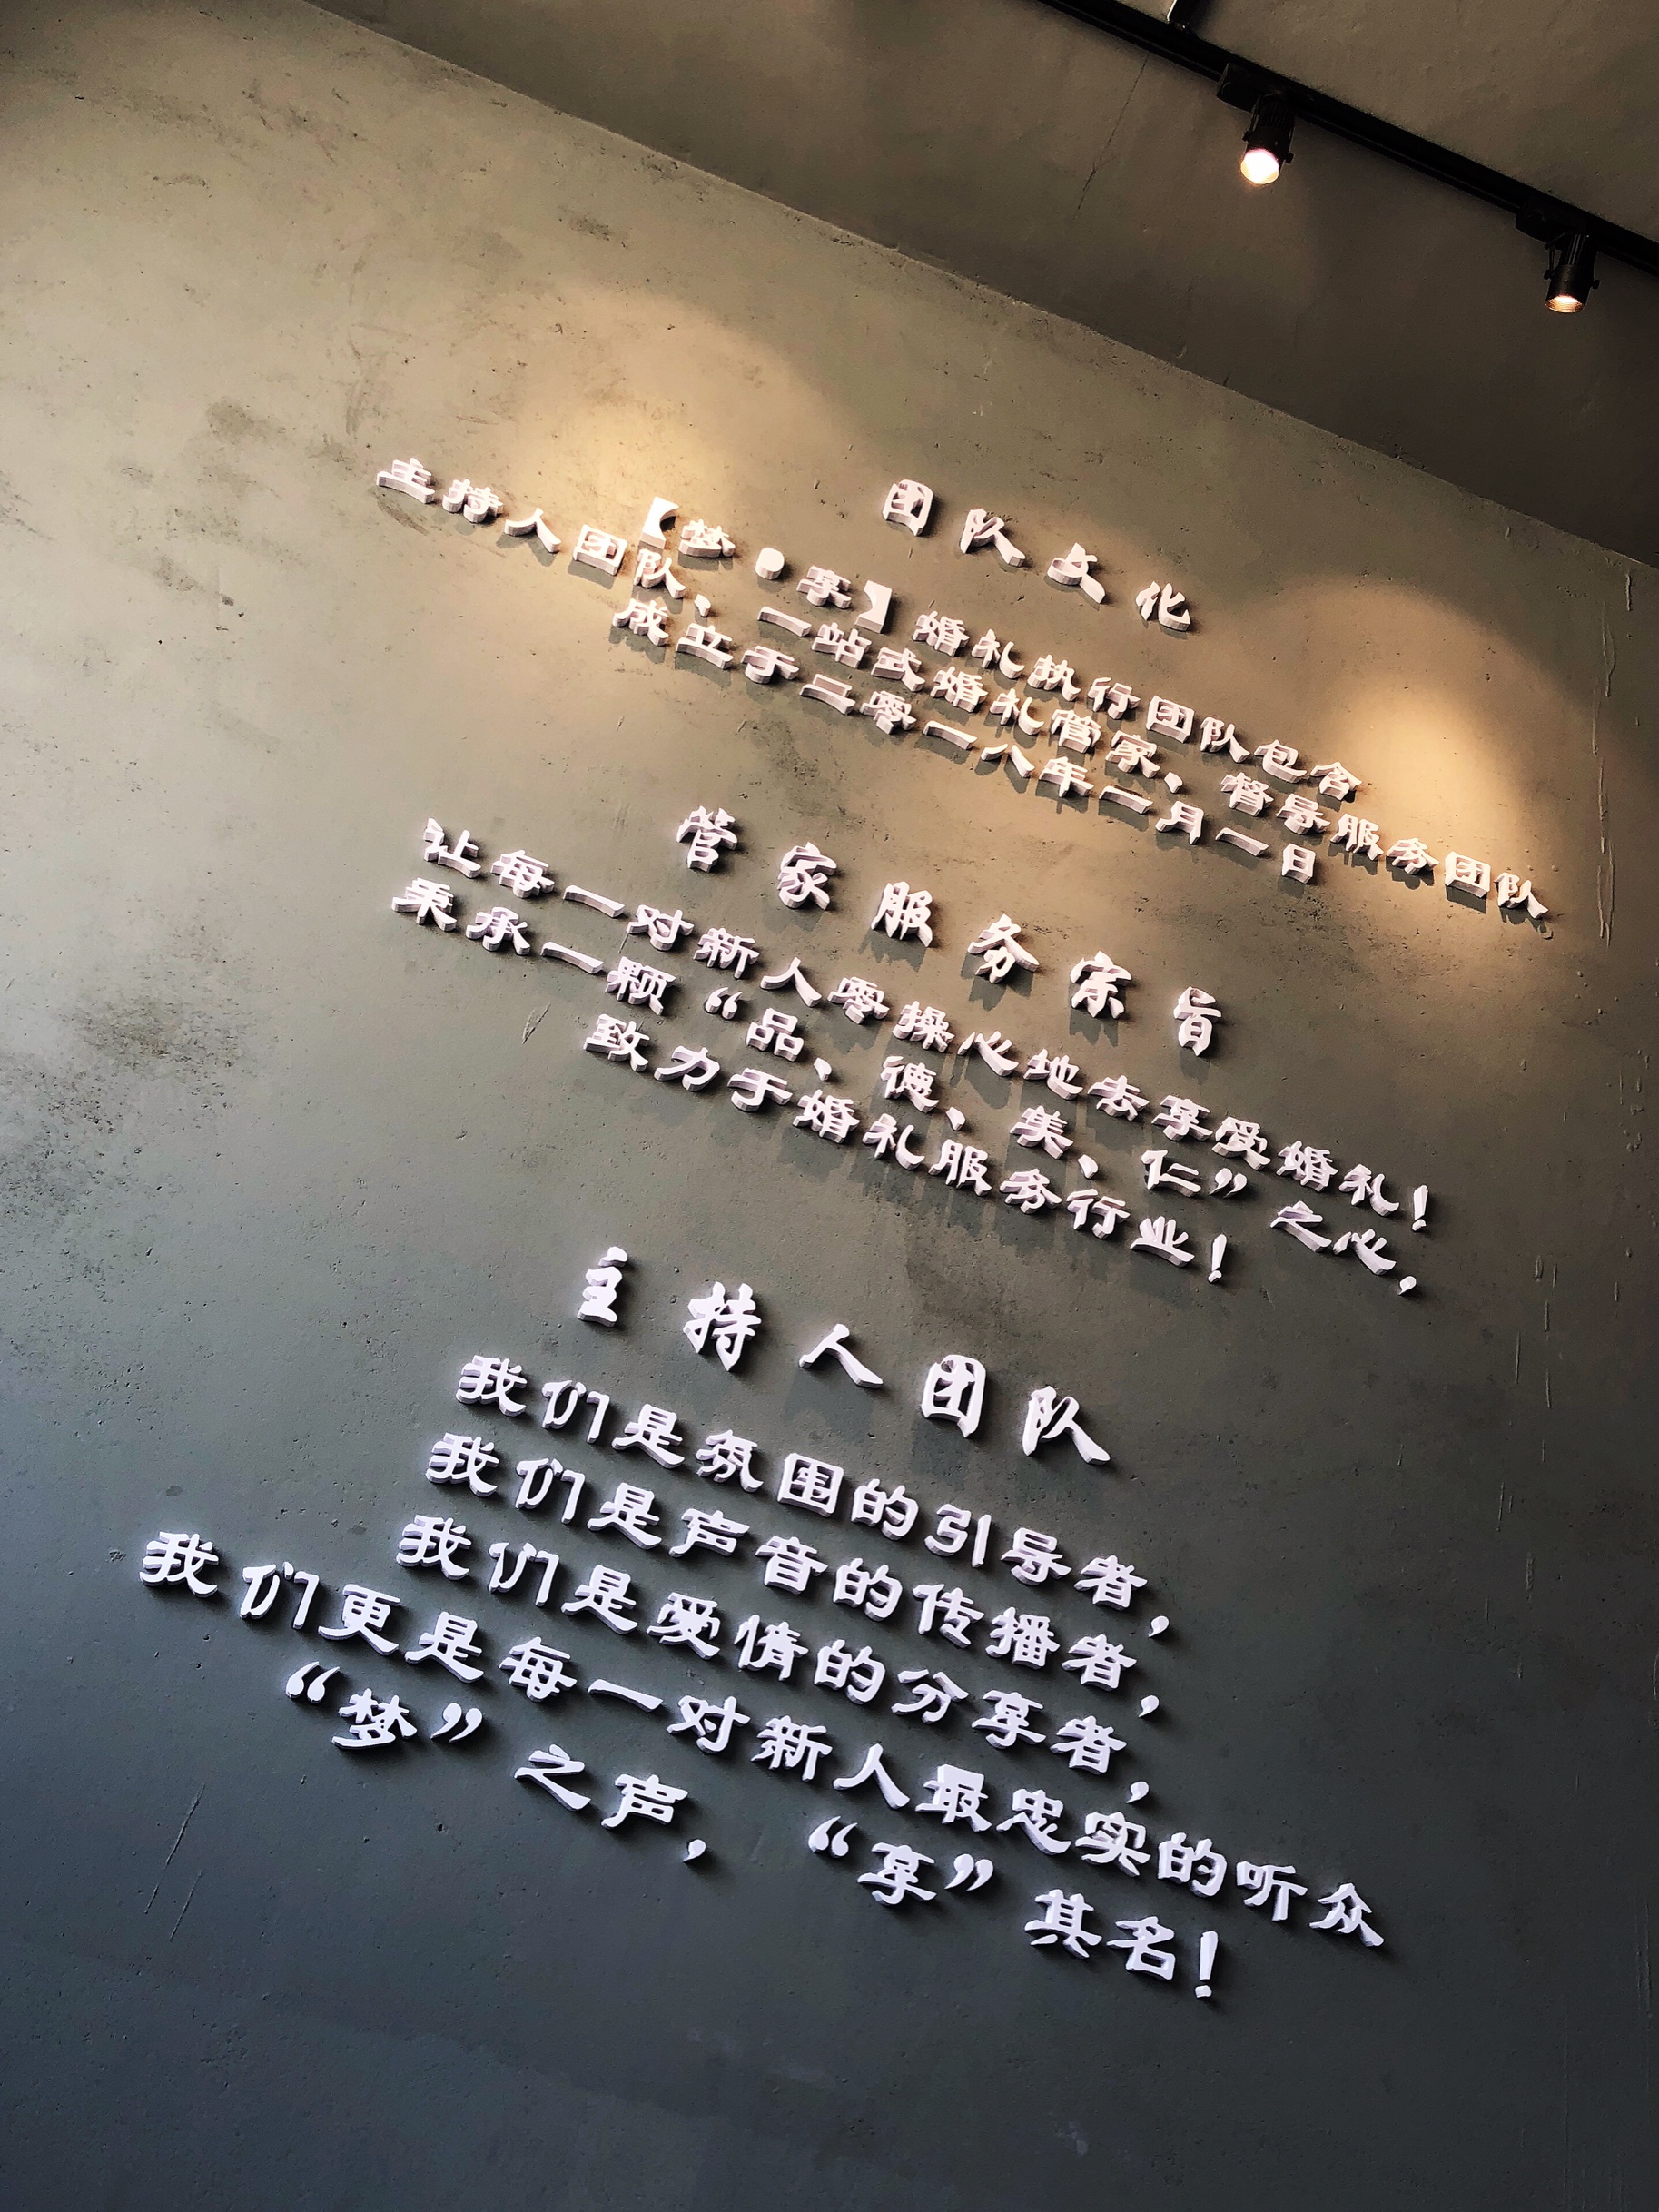 团队文化
【梦·享】婚礼执行团队包含
主持人团队、一站式婚礼管家、督导服务团队
成立于二零一八年一月一日
管家服务宗旨
让每一对新人零操心地去享受婚礼！
秉承一颗“品、德、美、仁”之心，
致力于婚礼服务行业！
主持人团队
我们是氛围的引导者，
我们是声音的传播者，
我们是爱情的分享者，
我们更是每一对新人最忠实的听众
“梦”之声，“享”其名！